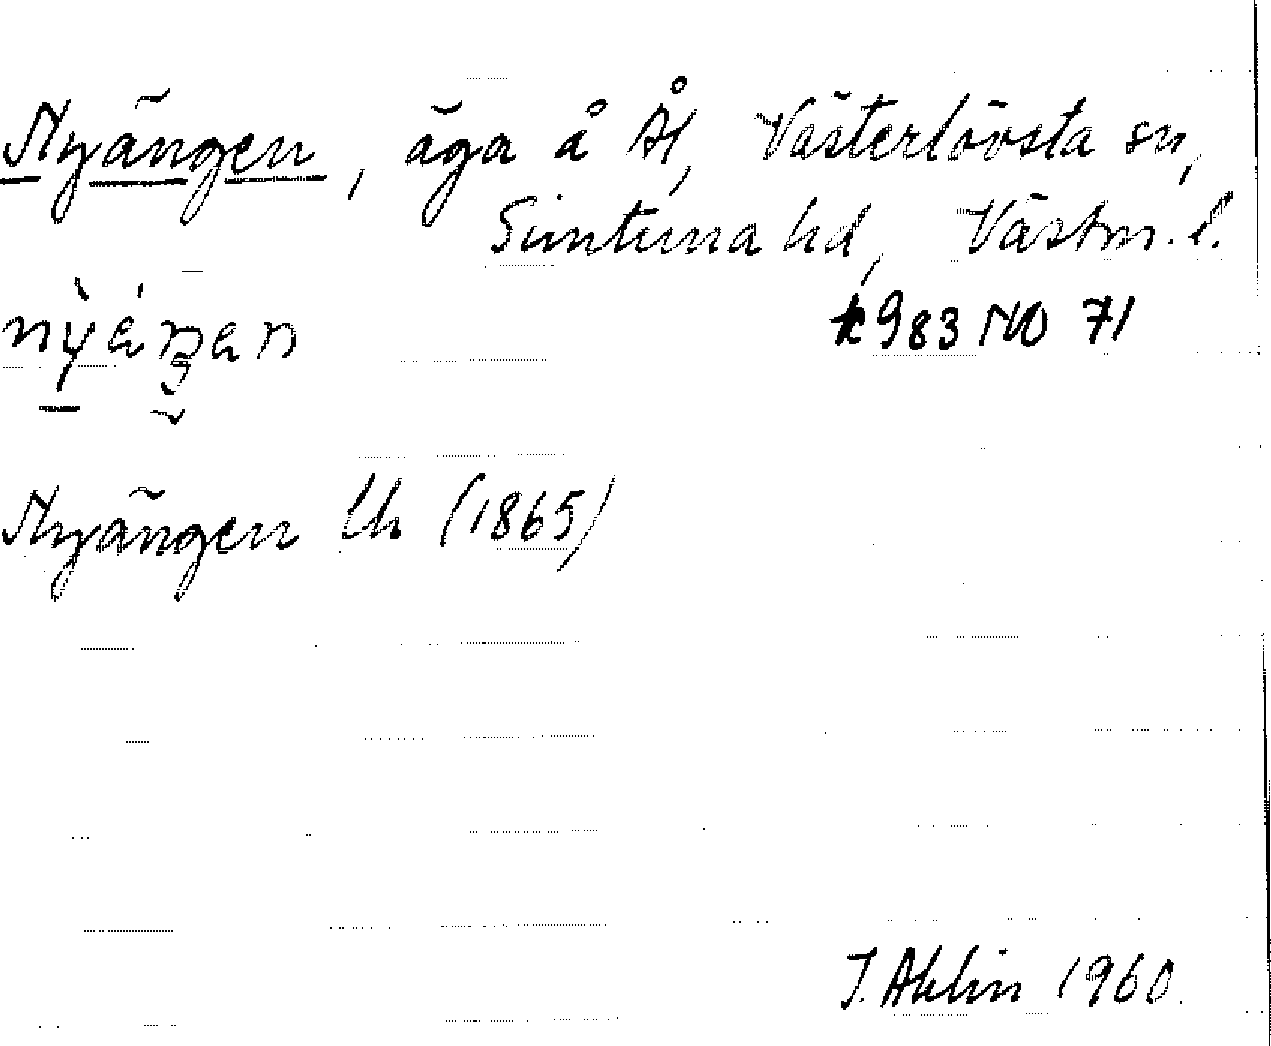 Nyängen, äga å Ål, Västerlövsta sn,
Simtuna hd, Västm. l.
k983 NO 71
Nyängen Lh (1865)
J. Ahlin 1960.